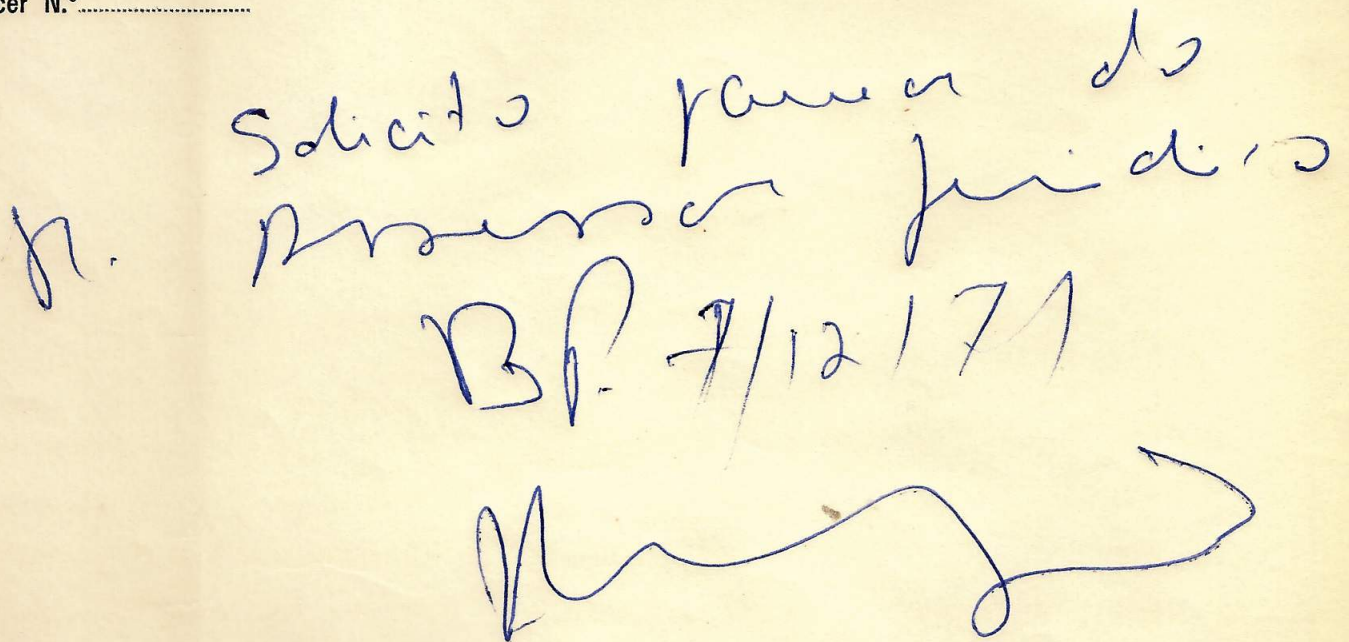 cer N.º
Solicito parecer do
Sr. Assessor Jurídico
B.P. 7/12/71